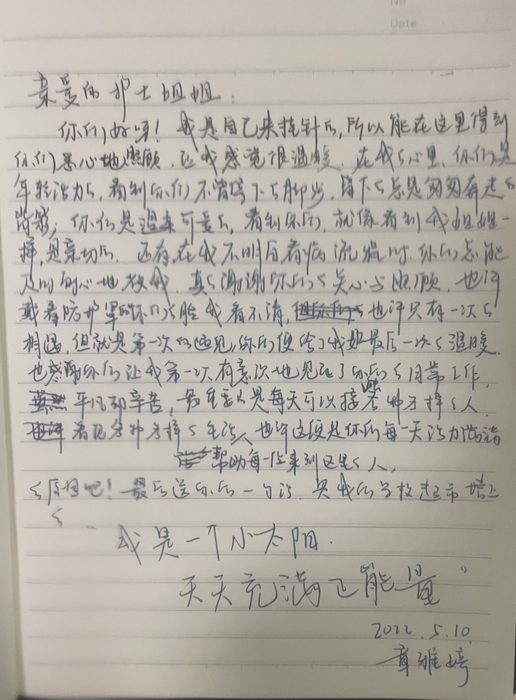 No
Date
亲爱的护士姐姐:
你们好呀!我是自己来挂针的,所以能在这里得到
你们关心地照顾,让我感觉很温暖.在我心里,你们是
年轻活力的,看到你们不曾停下的脚步,留下的总是匆匆奔走的
背影,你们是温柔可亲的,看到你们,就像看到我姐姐一
样,是亲切的.还有在我不明白看病流程时,你们总能
及时耐心地教我.真的谢谢你们的关心与照顾,也许
戴着防护罩的你们的脸我看不清,也许只有一次的
相遇,但就是第一次的遇见,你们便给了我如最后一次的温暖.
也感谢你们让我第一次有意识地见证了你们的日常工作,
平凡却辛苦,最重要的是每天可以接触各种才样的人.
看见各种才样的生活,也许这便是你们每一天活力满满
帮助每一位来到这里的人.
的原因吧!最后送你们一句话,是我们学校超市墙上
的
我是一个小太阳.
天天充满正能量"
2022.5.10.
章雅婷